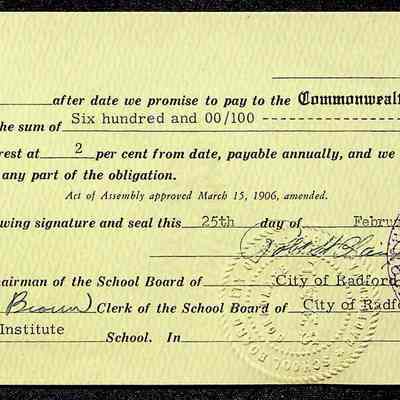 after date we promise to pay to the Commonwealt
he sum of Six hundred and 00/100
rest at 2 per cent from date, payable annually, and we
any part of the obligation.
Act of Assembly approved March 15, 1906, amended.
wing signature and seal this 25th day of Februa
airman of the School Board of City of Radford
Brown) Clerk of the School Board of City of Radfo
Institute School. In